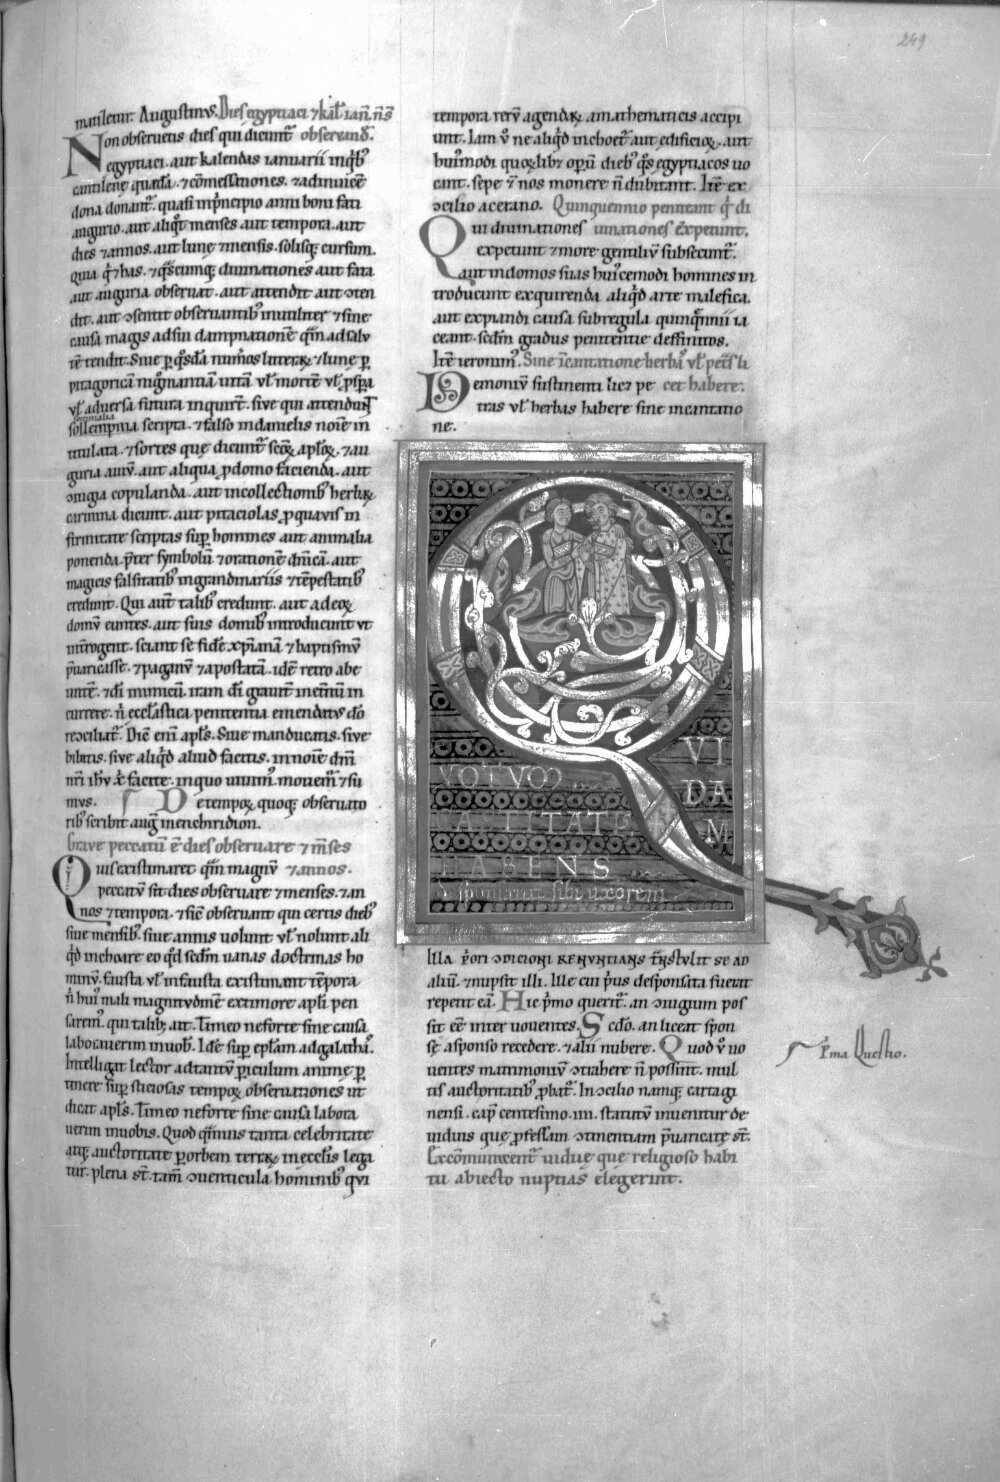 249
matiletur. Augustinus. Dies egyptiaci ⁊ kal̄. ian̄. n̄ s̄
Non observetis dies qui dicunt̄ observand̄.
egyptiaci. aut kalendas ianuarii in q̄b;
cantilenę quędā. ⁊ cōmessationes. ⁊ ad inuicē
dona donant̄. quasi in p̄ncipio anni boni fati
augurio. aut aliqͥt menses aut tempora. aut
dies ⁊ annos. aut lunę ⁊ mensis. solisq; cursum.
Quia q̄ ⁊ has. ⁊ q̄scumq; diuinationes aut fata
aut auguria observat. aut attendit aut ↄten
dit. aut ↄsentit observantib; inutilit̄ ⁊ sine
causa magis ad sui dampnationē q̄m ad salu
tē tendit. Siue ꝑ q̄sdā num̄os litterar̄. ⁊ lunę ꝑ
pitagoricā nigromantiā uitā vl̄ mortē vl̄ ꝓspa
vl̄ adversa futura inquirt̄. sive qui attendunt
sollempnia scripta. ⁊ falso in danielis noīe in
titulata. ⁊ sortes quę dicunt̄ scōꝝ aplōꝝ. ⁊ au
guria auiū. aut aliqua ꝓ domo facienda. aut
ↄiugia copulanda. aut in collectionib; herbaꝝ
carmina dicunt. aut pitaciolas ꝓ quavis in
firmitate scriptas suꝑ homines aut animalia
ponenda. p̄ter symbolū ⁊ orationē dn̄icā. aut
magicis falsitatib; in grandinariis ⁊ tēpestatib;
credunt. Qui aut̄ talib; credunt. aut ad eoꝝ
domū euntes. aut suis domib; introducunt ut
int̄rogent. sciant se fidē xp̄ianā ⁊ baptismū
p̄uaricasse. ⁊ paganū ⁊ apostatā. idē retro abe
untē. ⁊ dī inimicū. iram dī grauit̄ in et̄nū in
currere. n̄ ecclastica penitentia emendatus dō
reↄciliat̄. Dic̄ eni apl̄s. Siue manducatis. sive
bibitis. sive aliqͥd aliud facitis. in noīe dn̄i
nr̄i ih̄u x̄ facite. in quo uiuim̄. mouem̄ ⁊ su
mus. De tempoꝝ quoq; observatio
nib; scribit aug̃ in enchiridion.
Grave peccatū ē dies observare ⁊ m̄ses
Quis existimaret q̄m magnū ⁊ annos.
peccatū sit dies observare ⁊ menses. ⁊ an
nos ⁊ tempora. ⁊ sic̄ observant qui certis dieb;
siue mensib; siue annis uolunt vl̄ nolunt ali
qͥd inchoare eo qͥd sedm̄ uanas doctrinas ho
minū. fausta vl̄ infausta existimant tēpora
n̄ hui; mali magnitudinē ex timore apl̄i pen
sarem̄. qui talib; ait. Timeo ne forte sine causa
laborauerim in uob̄. Idē suꝑ epl̄am ad galathā.
Intelligat lector ad tantū ꝑiculum animę ꝑ
tinere suꝑsticiosas tempoꝝ observationes ut
dicat apl̄s. Timeo ne forte sine causa labora
uerim in uobis. Quod q̄m̄uis tanta celebritate
atq; auctoritate ꝑ orbem terraꝝ in eccl̄is lega
tur. plena st̄. tam̄ ↄuenticula hominib; qui
tempora rerū agendaꝝ a mathematicis accipi
unt. Iam v̊ ne aliqͥd inchoet̄ aut ędificioꝝ. aut
hui;modi quoꝝlib; opeꝝ dieb; q̄s egyptiacos uo
cant. sepe ⁊ nos monere n̄ dubitant. Itē ex
ↄcilio acetano. Quinquennio peniteant q̄ di
Qui diuinationes uinationes expetiunt.
expetunt ⁊ more gentiliū subsecunt̄.
aut in domos suas hui;cemodi homines in
troducunt exquirenda aliqͥd arte malefica.
aut expiandi causa sub regula quinq̄nnii ia
ceant. sedm̄ gradus penitentie deffinitos.
Itē ieronim̄. Sine īcantatione herbā vl̄ petr̄s li
Demoniū sustinenti licz pe cet habere.
tras vl̄ herbas habere sine incantatio
ne.
QUI
DA
M
VOTUM
CASTITATIS
HABENS
desponsauit sibi uxorem
Illa priori ↄdicioni renuntians trānstulit se ad
aliū. ⁊ nupsit illi. Ille cui pͥus desponsata fuerat
repetit eā. Hic p̄mo querit̄. an ↄiugium pos
sit eē inter uouentes. Scdo. an liceat spon
sę a sponso recedere. ⁊ alii nubere. Quod v̊ uo
uentes matrimoniū ↄtrahere n̄ possint. mul
tis auctoritatib; ꝓbat̄. In ↄcilio namq; cartagi
nensi. cap̄ centesimo. iiii. statutū inuenitur de
uiduis que ꝓfessam ↄtinentiam p̄uaricatę st̄.
Excōmunicent̄ uiduę quę religioso habi
tu abiecto nuptias elegerint.
P̄ma Questio.